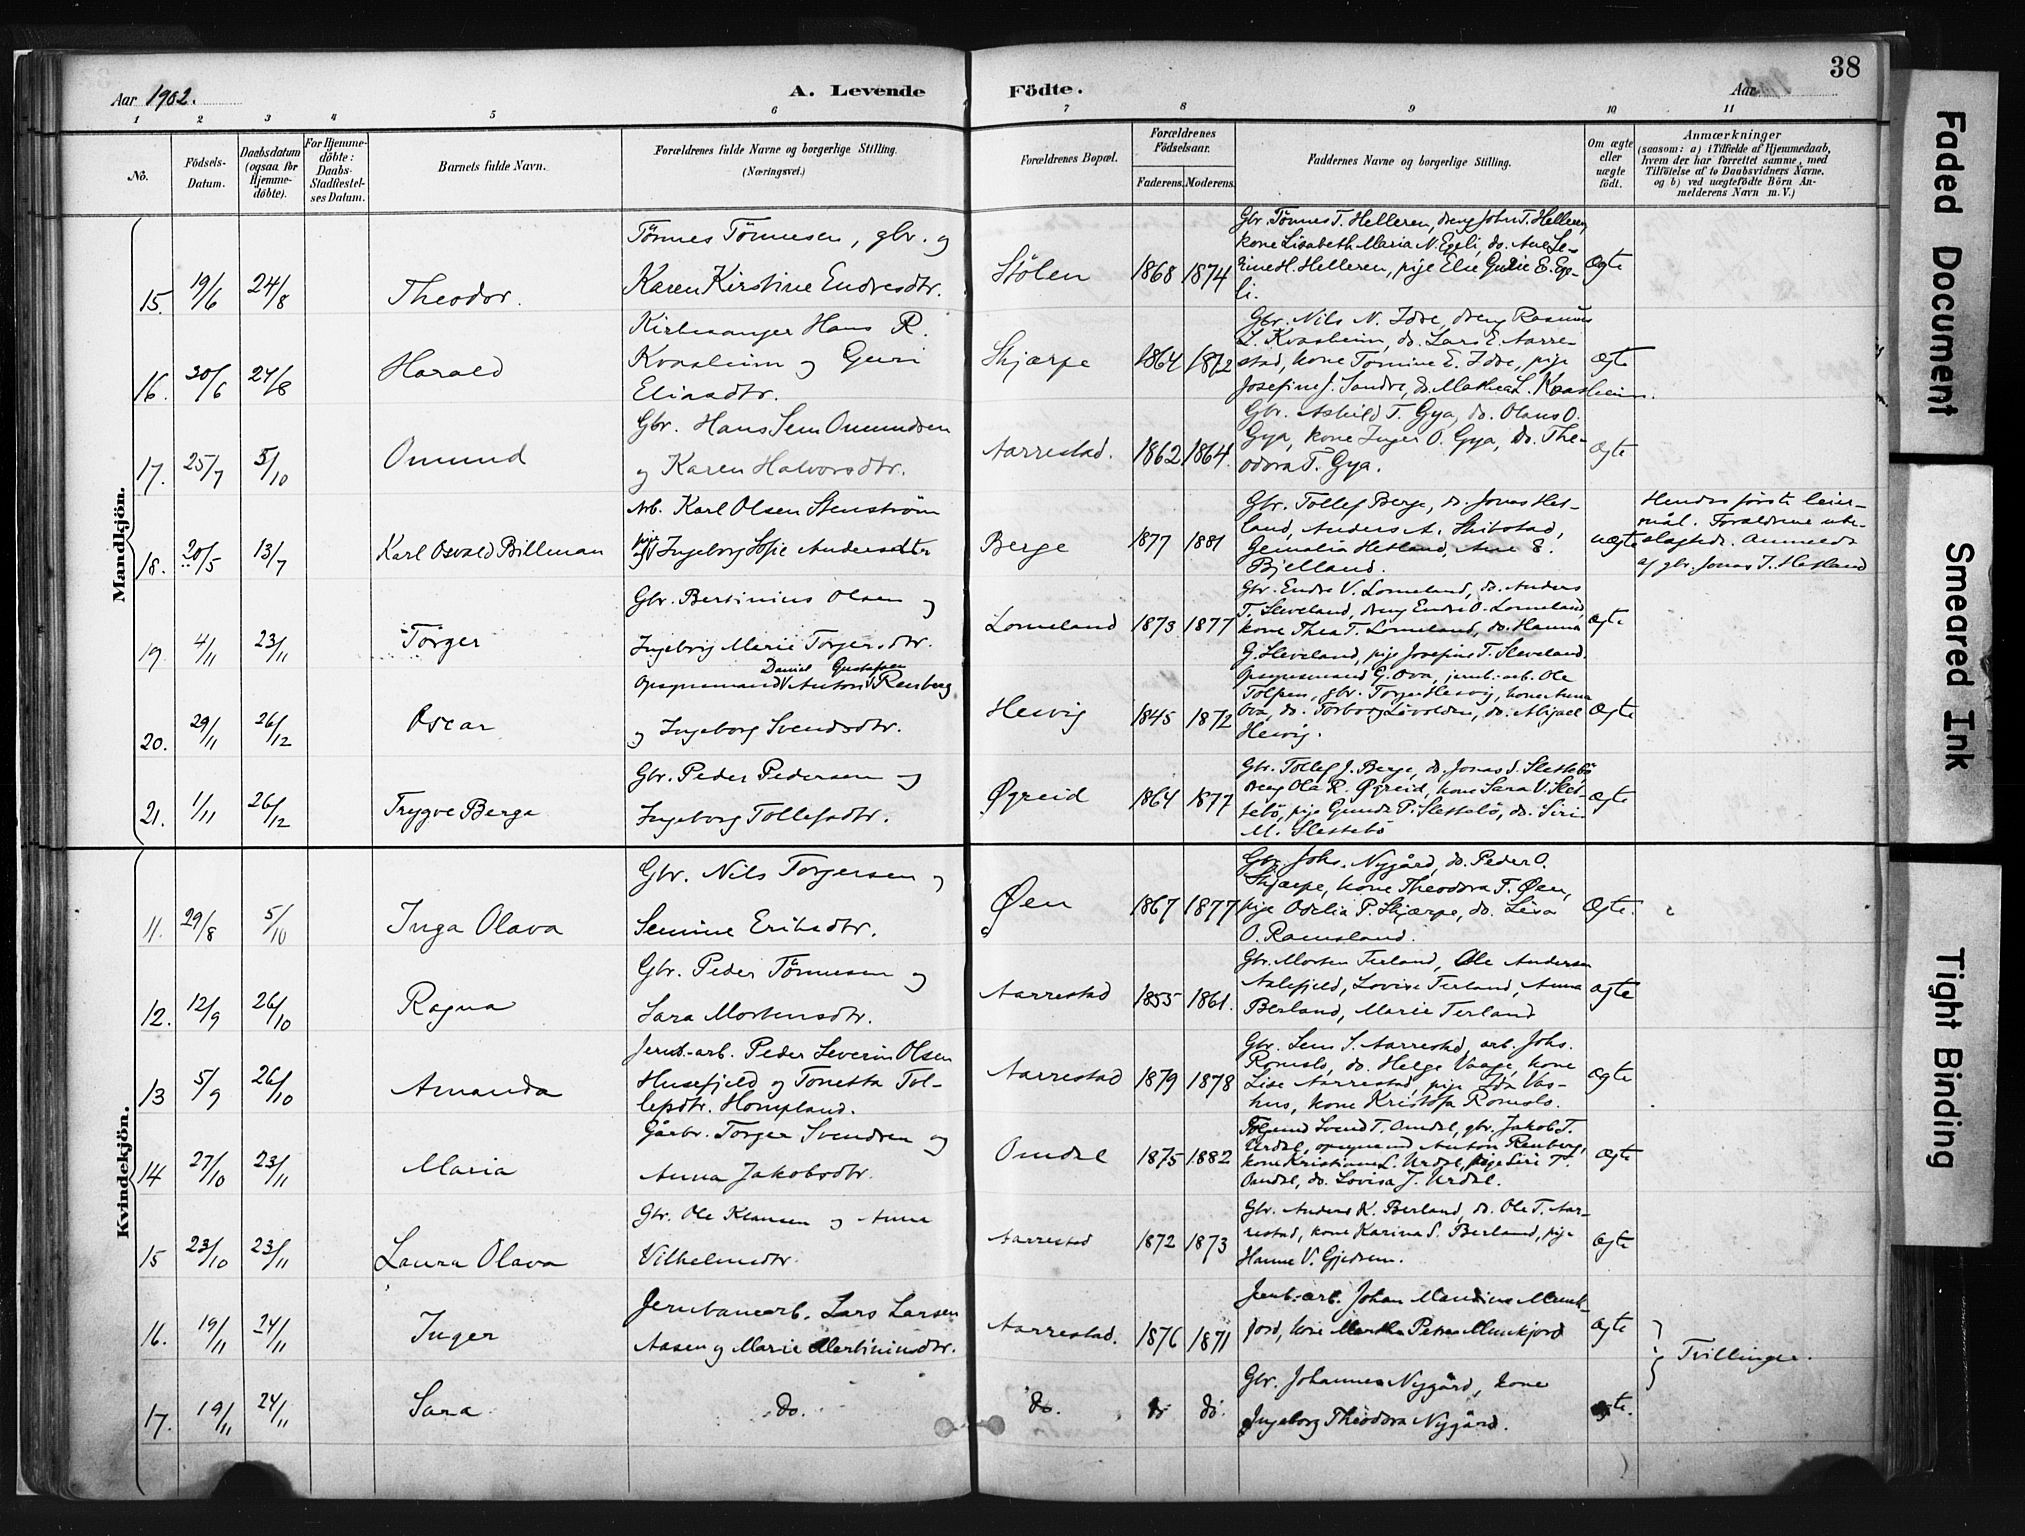 Aar 1902.
A. Levende Födte.
Aar
38
1 2 3 4 5 6 7 8 9 10 11
No.
Födsels-Datum.
Daabsdatum (ogsaa for Hjemmedöbte).
For Hjemmedöbte: Daabs-Stadfæstelses Datum.
Barnets fulde Navn.
Forældrenes fulde Navne og borgerlige Stilling. (Næringsvei.)
Forældrenes Bopæl.
Forældrenes Födselsaar.
Faderens. Moderens.
Faddernes Navne og borgerlige Stilling.
Om ægte eller uægte födt.
Anmærkninger
(saasom: a) i Tilfælde af Hjemmedaab, hvem der har forrettet samme, med Tilföielse af to Daabsvidners Navne, og b) ved uægtefödte Börn Anmelderens Navn m. V.)
Mandkjön.
15. 19/6 24/8 Theodor.
Tönnes Tönnesen, gbr. og
Karen Kirstine Endresdtr.
Stölen 1868 1874
Gbr. Tönnes T. Helleren, dreng John T. Helleren,
kone Lisabeth Maria N. Egeli, do. Ane Se-
rine H. Helleren, pige Elie Gurie E. Ege-
li.
Ægte
16. 30/6 24/8 Harald
Kirkesanger Hans R.
Kvasheim og Guri
Eliasdtr.
Skjærpe 1864 1872
Gbr. Nils N. Idsø, dreng Rasmus
L. Kvasheim, do. Lars E. Aarre
stad, kone Tomine E. Idsø, pige
Josefine J. Sandve, do. Mathea L. Kvasheim.
Ægte
17. 25/7 5/10 Omund
Gbr. Hans Sem Omundsen
og Karen Halvorsdtr.
Aarrestad. 1862 1864.
Gbr. Askild T. Gya, do. Olaus O.
Gya, kone Inger O. Gya, do. The-
odora T. Gya.
Ægte
18. 20/5 13/7 Karl Osvald Billman
Arb. Karl Olsen Stenström
og pige Ingeborg Sofie Andersdtr
Berge 1877 1881
Gbr. Tollef Berge, do. Jonas Het-
land, Anders A. Skibstad,
Gemalia Hetland, Ane E.
Bjelland.
uægte
Hendes förste leier-
mål. Forældrene ube-
slægtede. Anmeldt
af gbr. Jonas T. Hetland
19. 4/11 23/11 Torger
Gbr. Bertinius Olsen og
Ingeborg Marie Torgersdtr.
Lomeland 1873 1877
Gbr. Endre V. Lomeland, do. Anders
T. Sleveland, dreng Endre O. Lomeland,
kone Thea T. Lomeland, do. Hanna
G. Sleveland, pige Josefine T. Sleveland.
Ægte
20. 29/11 26/12 Oscar
Daniel Gustafsen
Opsynsmand Anton Renberg
og Ingeborg Svendsdtr.
Hesvig 1845 1872
Opsynsmand G. Ova, jernb.-arb. Ole
Tolfsen, gbr. Torger Hesvig, kone Anna
Ova, do. Torborg Lavolden, do. Abigael
Hesvig.
Ægte
21. 1/11 26/12 Trygve Berge
Gbr. Peder Pedersen og
Ingeborg Tollefsdtr.
Øgreid 1864 1877
Gbr. Tollef J. Berge, do. Jonas S. Slettebö
dreng Ola R. Øgreid, kone Sara V. Slet-
tebö, pige Gunda P. Slettebö, do. Siri
M. Slettebö
Ægte
Kvindekjön.
11. 29/8 5/10 Inga Olava
Gbr. Nils Torgersen og
Semine Eriksdtr.
Øen 1867 1877
Gbr. Johs. Nygård, do. Peder O.
Skjærpe, kone Theodora T. Øen,
pige Odelia P. Skjærpe, do. Lisa
O. Ramsland.
Ægte.
12. 12/9 26/10 Ragna
Gbr. Peder Tönnesen og
Sara Mortensdtr.
Aarrestad 1855 1861.
Gbr. Morten Terland, Ole Andersen
Aslefjeld, Lovise Terland, Anna
Berland, Marie Terland
ægte
13 5/9 26/10 Amanda
Jernb.-arb. Peder Severin Olsen
Husefjeld og Tonetta Tol-
lefsdtr. Hompland.
Aarrestad 1879 1878
Gbr. Sem S. Aarrestad, arb. Johs.
Romslo, do. Helge Vaage, kone
Lise Aarrestad, pige Ida Vas-
hus, kone Kristofa Romslo.
Ægte
14 27/10 23/11 Maria
Gårbr. Torger Svendsen og
Anna Jakobsdtr.
Omdal 1875 1882
Svend T. Omdal, gbr. Jakob T.
Urdal, opsynsmd Anton Renberg,
kone Kristiane L. Urdal, pige Siri T.
Omdal, do. Lovisa J. Urdal.
Ægte
15 23/10 23/11 Laura Olava
Gbr. Ole Klausen og Anna
Vilhelmsdtr.
Aarrestad 1872 1873
Gbr. Anders K. Berland, do. Ole T. Aar-
restad, kone Karina S. Berland, pige
Hanne V. Gjedrem.
Ægte
16. 19/11 24/11 Inger
Jernbanearb. Lars Larsen
Aasen og Marie Martininsdtr.
Aarrestad. 1876 1871
Jernb.-arb. Johan Mandius Munk-
jord, kone Martha Petra Munkjord
Ægte
Tvillinger.
17. 19/11 24/11 Sara
do. do. do do.
Gbr. Johannes Nygård, kone
Ingeborg Theodora Nygård.
ægte.
Faded Document
Smeared Ink
Tight Binding